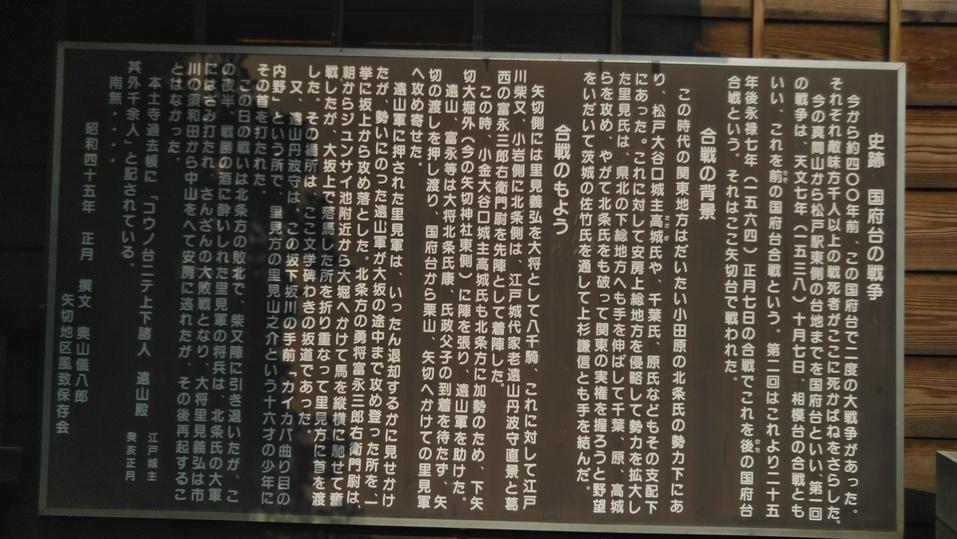 史跡　国府台の戦争
今から約四〇〇年前、この国府台で二度の大戦争があった。
それぞれ敵味方千人以上の戦死者がここに死かばねをさらした。
今の真間山から松戸駅東側の台地までを国府台といい、第一回
の戦争は、天文七年（一五三八）十月七日、相模台の合戦とも
いい、これを前の国府台合戦という。第二回はこれより二十五
年後永禄七年（一五六四）正月七日の合戦でこれを後の国府台
合戦という。それはここ矢切台で戦われた。
合戦の背景
この時代の関東地方はだいたい小田原の北条氏の勢力下にあ
り、松戸大谷口城主高城氏や、千葉氏、原氏などもその支配下
にあった。これに対して安房上総地方を侵略して勢力を拡大し
た里見氏は、県北の下総地方へも手を伸ばして千葉、原、高城
らを攻め、やがて北条氏をも破って関東の実権を握ろうと野望
をいだいて茨城の佐竹氏を通して上杉謙信とも手を結んだ。
合戦のもよう
矢切側には里見義弘を大将として八千騎、これに対して江戸
川柴又、小岩側に北条側は、江戸城代家老遠山丹波守直景と葛
西の富永三郎右衛門尉政家を先陣として着陣した。
この時、小金大谷口城主高城氏も北条方に加勢のため、下矢
切大堀外（今の矢切神社東側）に陣を張り、遠山軍を助けた。
遠山、富永等は大将北条氏康、氏政父子の到着を待たず、矢
切の渡しを押し渡り、国府台から栗山、矢切へかけての里見軍
へ攻め寄せた。
遠山軍に押された里見軍は、いったん退却するかに見せかけ
たが、勢いにのった遠山軍が大坂の途中まで攻め登った所を、一
挙に坂上から攻め落とした。北条方の勇将富永三郎右衛門尉は、
朝からジュンサイ池附近から大堀へかけて馬を縦横に馳せて奮
戦したが、大坂上で落馬した所を折り重なって里見方に首を渡
した。その場所は、ここ文学碑わきの坂道であった。
又、遠山丹波守は、この坂下坂川の手前、カイカバ曲り目の
内野」という所で、里見方の里見山之介という十六才の少年に
その首を打たれた。
この日の戦いは北条方の敗北で、柴又陣に引き退いたが、こ
の夜半、戦勝の酒に酔いしれた里見軍の将兵は、北条氏の大軍
にはさみ打たれ、さんざんの大敗戦となり、大将里見義弘は市
川の須和田から中山をへて安房に逃れたが、その後再起するこ
とはなかった。
本土寺過去帳に「コウノ台ニテ上下諸人　遠山殿　江戸城主
其外千余人」と記されている。　癸亥正月
南無・・・
昭和四十五年　正月　撰文　奥山儀八郎
矢切地区風致保存会